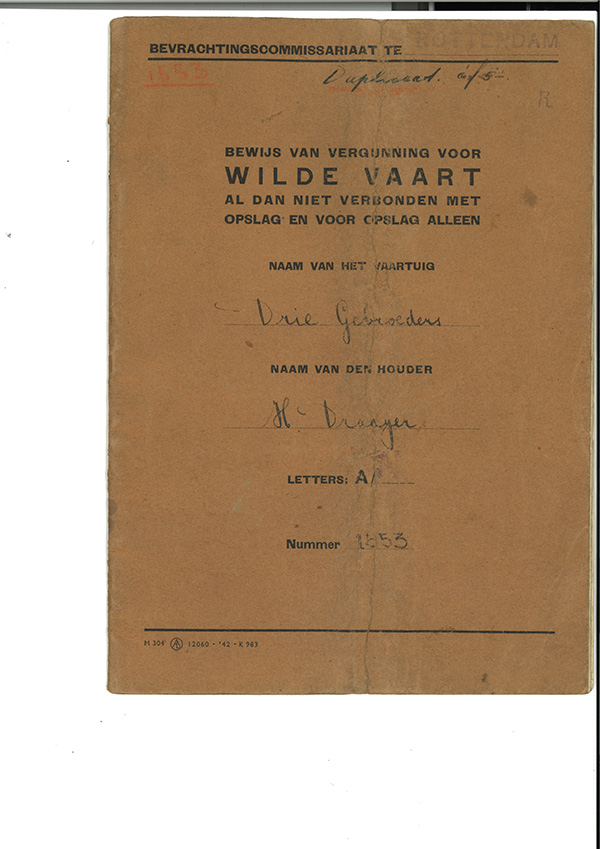 BEVRACHTINGSCOMMISSARIAAT TE ROTTERDAM
1553
R
BEWIJS VAN VERGUNNING VOOR
WILDE VAART
AL DAN NIET VERBONDEN MET
OPSLAG EN VOOR OPSLAG ALLEEN
NAAM VAN HET VAARTUIG
Drie Gebroeders
NAAM VAN DEN HOUDER
H. Draayer
LETTERS: A/
Nummer 1553
M 304 12060 - '42 - K 983